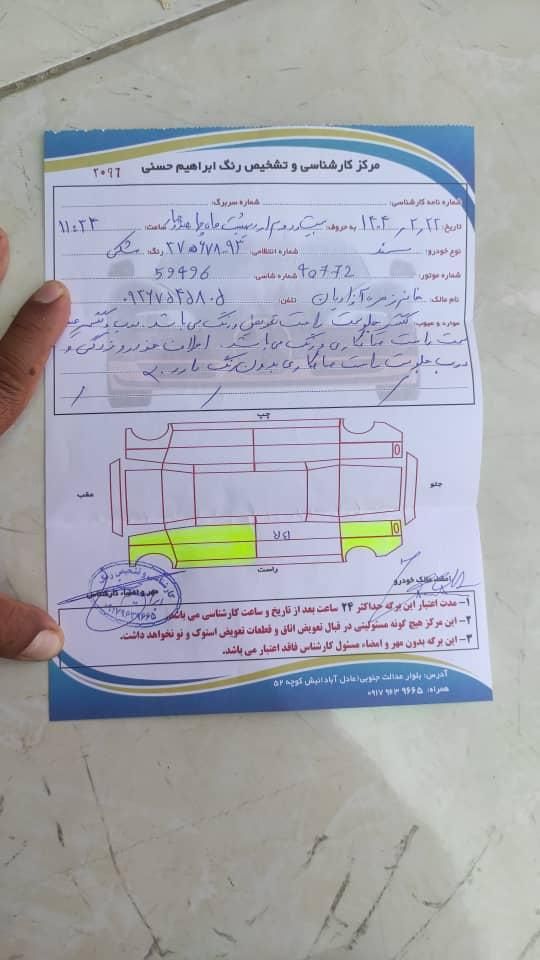 مرکز کارشناسی و تشخیص رنگ ابراهیم حسنی
۲۰۹۶
شماره نامه کارشناسی: شماره سربرگ:
تاریخ: ۱۴۰۴,۲,۲۲ به حروف: بیست و دوم اردیبهشت ماه ساعت: ۱۱:۲۳
نوع خودرو: سمند شماره انتظامی: رنگ: مشکی
شماره موتور: ۹۵۷۷۲ شماره شاسی: ۵۹۴۹۶
نام مالک: خانم آزادیان تلفن:
موارد و عیوب: گلگیر جلو سمت راست تعویض و رنگ می باشد. درب و گلگیر عقب
سمت راست صافکاری و رنگ می باشد.
درب جلو سمت راست صافکاری بدون رنگ دارد.
چپ
عقب
جلو
راست
امضاء مالک خودرو
مهر و امضاء کارشناس
۱- مدت اعتبار این برگه حداکثر ۲۴ ساعت بعد از تاریخ و ساعت کارشناسی می باشد.
۲- این مرکز هیچ گونه مسئولیتی در قبال تعویض اتاق و قطعات تعویض استوک و نو نخواهد داشت.
۳- این برگه بدون مهر و امضاء مسئول کارشناس فاقد اعتبار می باشد.
آدرس: بلوار عدالت جنوبی(عادل آباد)نبش کوچه ۵۲
همراه: ۰۹۱۷ ۹۶۳ ۹۶۶۵